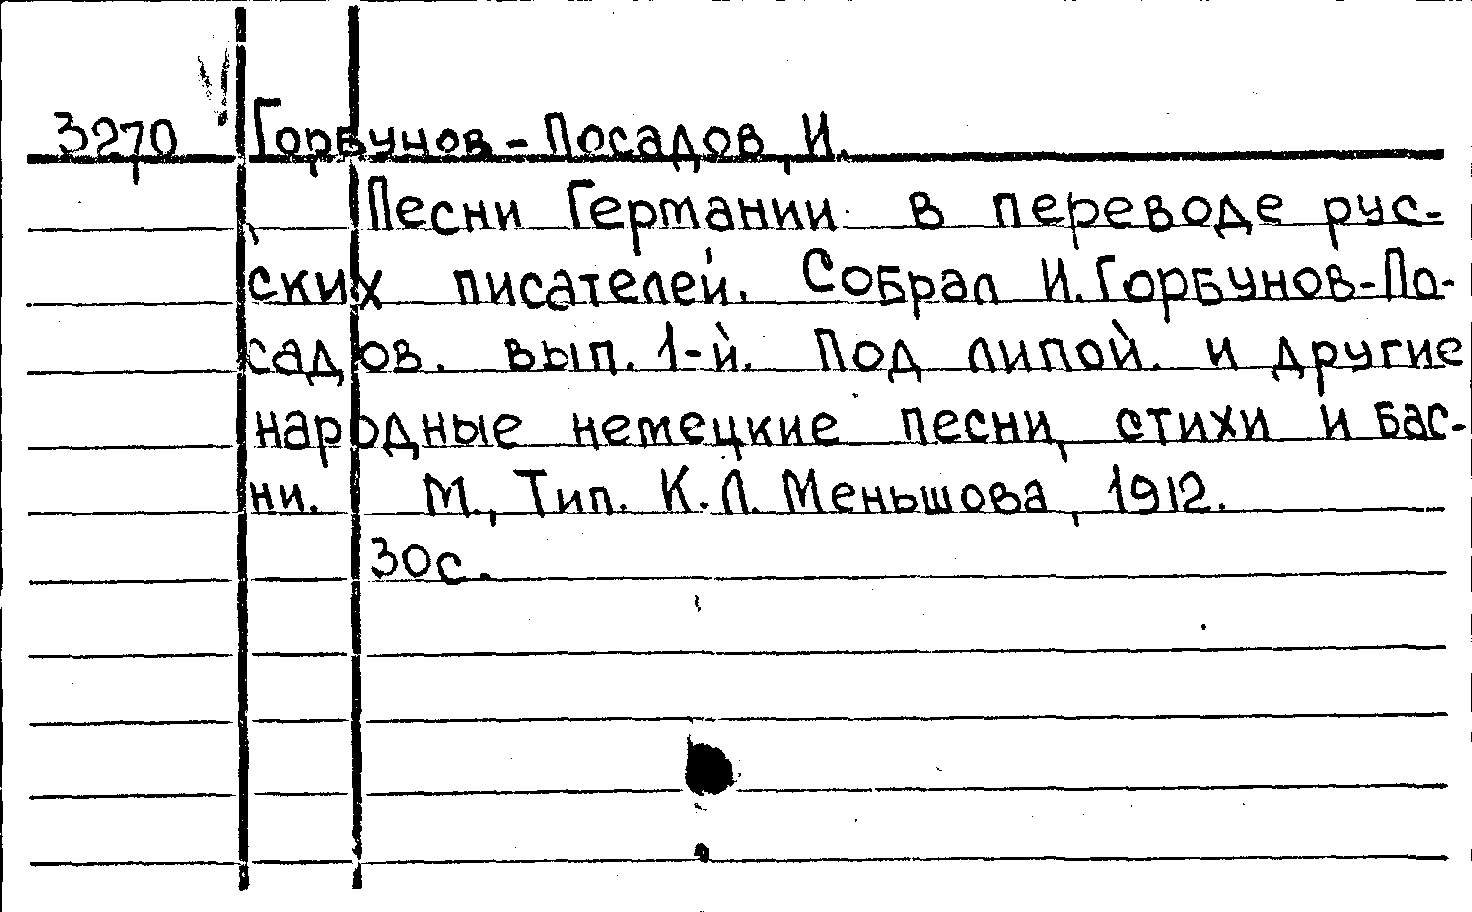 3270 Горбунов-Посадов, И.
Песни Германии в переводе рус-
ских писателей. Собрал И.Горбунов-По-
садов. вып. 1-й. Под липой. и другие
народные немецкие песни, стихи и бас-
ни. М., Тип. К.Л. Меньшова, 1912.
30с.